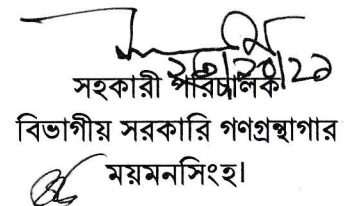 ২৩/১০/২১
সহকারী পরিচালক
বিভাগীয় সরকারি গণগ্রন্থাগার
ময়মনসিংহ।